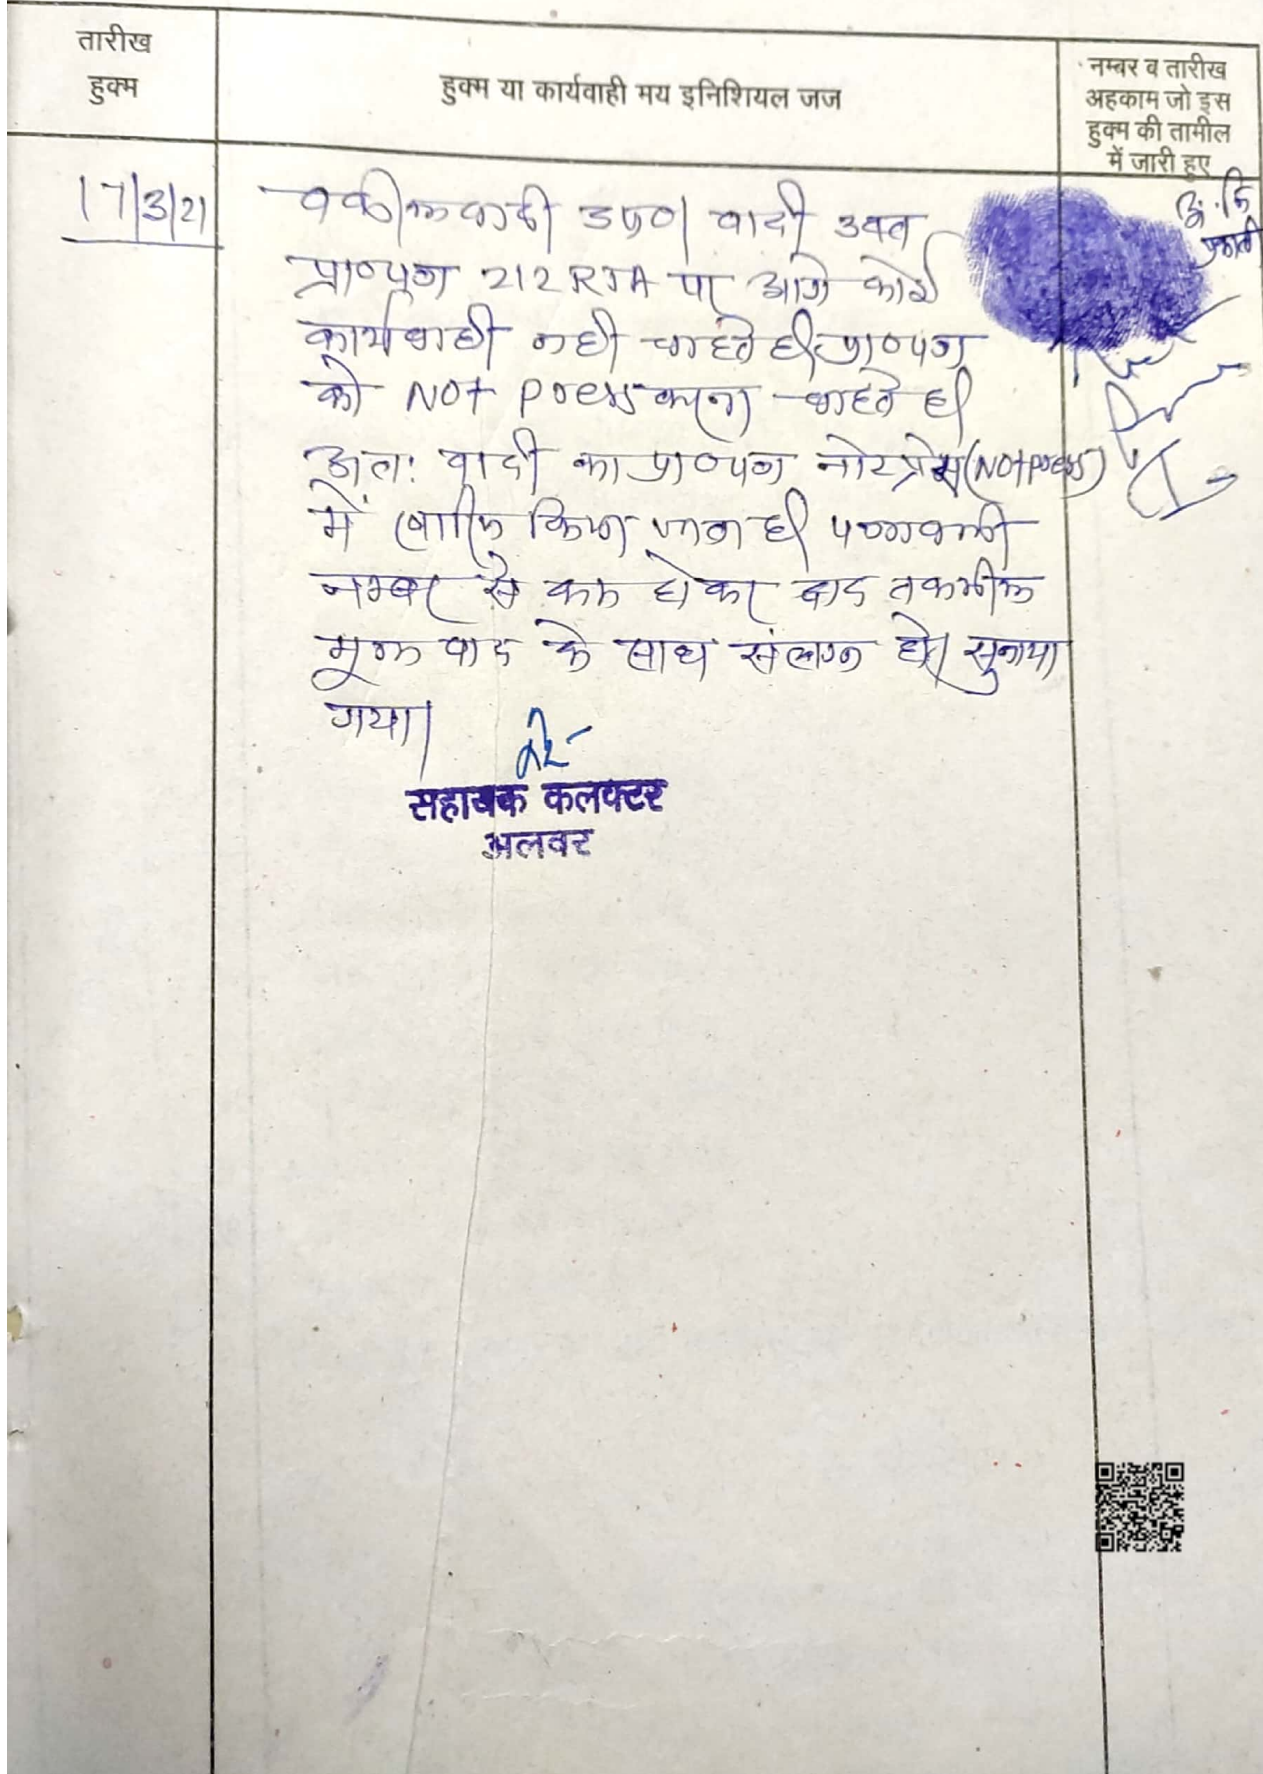 तारीख
हुक्म
हुक्म या कार्यवाही मय इनिशियल जज
नम्बर व तारीख
अहकाम जो इस
हुक्म की तामील
में जारी हुए
17/3/21
वकील वादी उप०। वादी उक्त
प्रा०पत्र 212 RTA पर आगे कोई
कार्यवाही नही चाहते है। प्रा०पत्र
को Not press करना चाहते है।
अतः वादी का प्रा०पत्र नोटप्रेस (Not press)
में खारिज किया जाता है। पत्रावली
नम्बर से कम होकर बाद तकमील
मूल वाद के साथ संलग्न हो। सुनाया
गया।
सहायक कलक्टर
अलवर